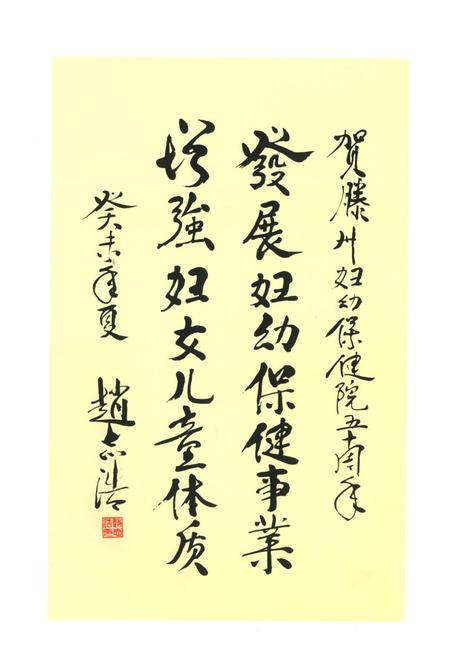 贺滕州妇幼保健院五十周年
發展妇幼保健事業
增強妇女儿童体质
癸未年夏
趙志浩